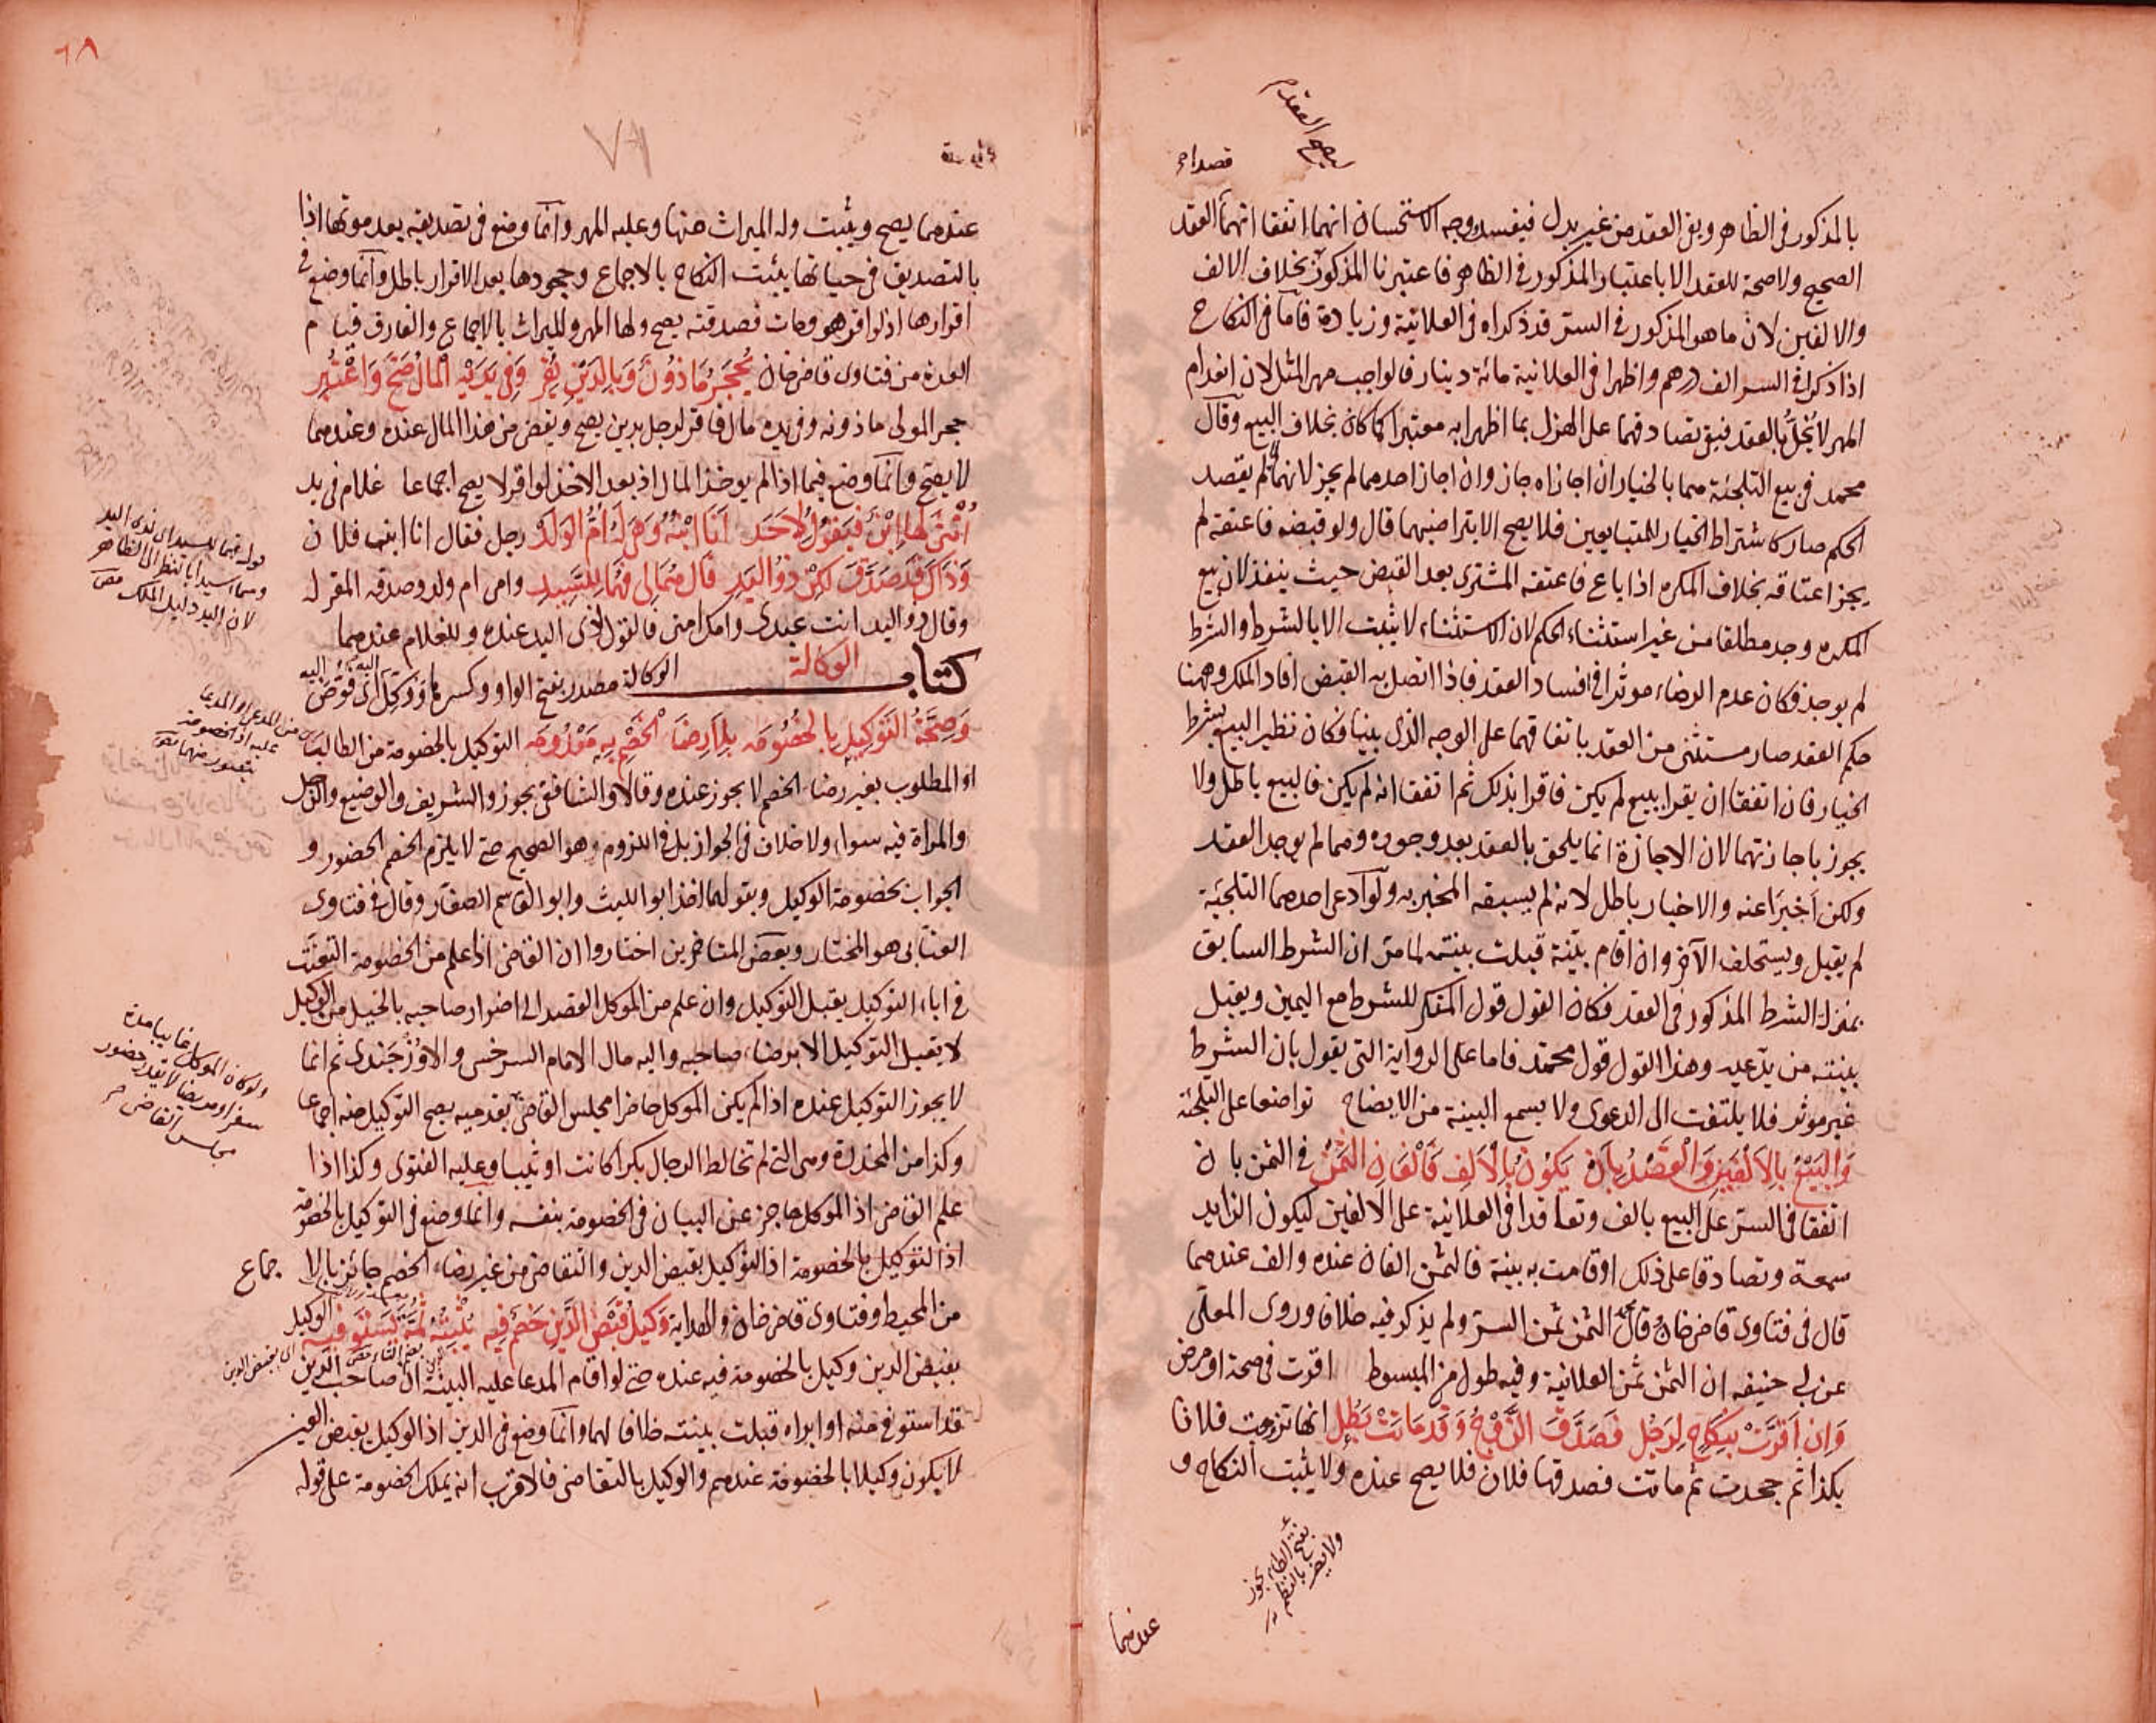 بالمذكور في الظاهر وبقى العقد من غير بدل فيفسد وجه الاستحسان انهما اتفقا انهما العقد
الصحيح ولا صحة للعقد الا باعتبار المذكور في الظاهر فاعتبرنا المذكور بخلاف الالف
والالفين لان ما هو المذكور في السر قد ذكراه في العلانية وزيادة فاما في النكاح
اذا ذكرا في السر الف درهم واظهرا في العلانية مائة دينار فالواجب مهر المثل لان انعدام
المهر لا يخل بالعقد فبقى تصادقهما على الهزل بما اظهرا به معتبرا كما كان بخلاف البيع وقال
محمد في بيع التلجئة هما بالخيار ان اجازاه جاز وان اجاز احدهما لم يجز لانهما لم يقصد
الحكم صار كاشتراط الخيار للمتبايعين فلا يصح الا بتراضيهما قال ولو قبضه فاعتقه لم
يجز اعتاقه بخلاف المكره اذا باع فاعتقه المشترى بعد القبض حيث ينفذ لان بيع
المكره وجد مطلقا من غير استثناء الحكم لان الاستثناء لا يثبت الا بالشرط والشرط
لم يوجد فكان عدم الرضاء موثرا في افساد العقد فاذا اتصل به القبض افاد الملك وههنا
حكم العقد صار مستثنى من العقد باتفاقهما على الوجه الذى بينا فكان نظير البيع بشرط
الخيار فان اتفقا ان يقرا ببيع لم يكن فاقرا بذلك ثم اتفقا انه لم يكن فالبيع باطل ولا
يجوز باجازتهما لان الاجازة انما يلحق بالعقد بعد وجوده وهما لم يوجد العقد
ولكن اخبرا عنه والاخبار باطل لانه لم يسبقه المخبر به ولو ادعى احدهما التلجئة
لم يقبل ويستحلف الآخر وان اقام بينة قبلت بينته لما مر ان الشرط السابق
بمنزلة الشرط المذكور في العقد فكان القول قول المنكر للشرط مع اليمين ويقبل
بينته من يدعيه وهذا القول قول محمد فاما على الرواية التى يقول بان الشرط
غير موثر فلا يلتفت الى الدعوى ولا يسمع البينة من الايضاح تواضعا على التلجئة
والبيع بالالفين والقصد بان يكون بالالف فالفان الثمن في الثمن بان
اتفقا في السر على البيع بالف وتعاقدا في العلانية على الالفين ليكون الزايد
سمعة وتصادقا على ذلك او قامت به بينة فالثمن الفان عنده والف عندهما
قال في فتاوى قاضيخان وقال الثمن ثمن السر ولم يذكر فيه خلافا وروى المعلى
عن ابى حنيفه ان الثمن ثمن العلانية وفيه طول من المبسوط اقرت في صحة او مرض
وان اقرت بنكاح لرجل فصدق الزوج وقد ماتت بطل انها تزوجت فلانا
بكذا ثم جحدت ثم ماتت فصدقها فلان فلا يصح عنده ولا يثبت النكاح و
بفتح الطاء يجوز
عندهما
٦٨
عندهما يصح ويثبت وله الميراث منها وعليه المهر وانما وضع في تصديقه بعد موتها اذا
بالتصديق في حياتها يثبت النكاح بالاجماع وجحودها بعد الاقرار باطل وانما وضع في
اقرارها اذ لو اقر هو ومات فصدقته يصح ولها المهر والميراث بالاجماع والفارق قيام
العدة من فتاوى قاضيخان يحجر ماذون وبالدين يقر وفي يديه المال صح واعتبر
حجر المولى ماذونه وفي يده مال فاقر لرجل بدين يصح ويقضى من هذا المال عنده وعندهما
لا يصح وانما وضع فيما اذا لم يوخذ المال اذ بعد الاخذ لو اقر لا يصح اجماعا غلام في يد
انثى لها ابن فيقول لاحد انا ابنه وهى له ام الولد رجل فقال انا ابن فلان
وذاك قد صدق لكن ذو اليد قال هما لى فهما للسيد وامى ام ولد وصدقه المقر له
وقال ذو اليد انت عبدى وامك امتى فالقول لذى اليد عنده وللغلام عندهما
كتاب الوكالة الوكالة مصدر بفتح الواو وكسرها ووكل اى فوض اليه
وصحة التوكيل بالخصومه بلا رضا الخصم به معدومه التوكيل بالخصومة من الطالب
او المطلوب بغير رضاء الخصم لا يجوز عنده وقالا والشافعى يجوز والشريف والوضيع والرجل
والمراة فيه سواء ولا خلاف في الجواز بل في اللزوم وهو الصحيح حتى لا يلزم الخصم الحضور و
الجواب بخصومة الوكيل وبقولهما اخذ ابو الليث وابو القاسم الصفار وقال في فتاوى
العتابى هو المختار وبعض المتاخرين اختاروا ان القاضى اذا علم من الخصومة التعنت
في اباء التوكيل يقبل التوكيل وان علم من الموكل القصد الى اضرار صاحبه بالحيل من الوكيل
لا يقبل التوكيل الا برضاء صاحبه واليه مال الامام السرخسى والاوزجندى ثم انما
لا يجوز التوكيل عنده اذا لم يكن الموكل حاضرا مجلس القاضى بقدميه يصح التوكيل منه اجماعا
وكذا من المخدرة وهى التى لم تخالط الرجال بكرا كانت او ثيبا وعليه الفتوى وكذا اذا
علم القاضى اذ الموكل عاجز عن البيان في الخصومة بنفسه وانما وضع في التوكيل بالخصومة
اذ التوكيل بالخصومة اذ التوكيل بقبض الدين والتقاضى من غير رضاء الخصم جائز بالاجماع
من المحيط وفتاوى قاضيخان والهداية وكيل قبض الدين خصم فيه يثبته ثمة يستوفيه الوكيل
بقبض الدين وكيل بالخصومة فيه عنده حتى لو اقام المدعا عليه البينة ان صاحب الدين
قد استوفى منه او ابراه قبلت بينته خلافا لهما وانما وضع في الدين اذ الوكيل بقبض العين
لا يكون وكيلا بالخصومة عندهم والوكيل بالتقاضى فالاقرب انه يملك الخصومة على قوله
لان اليد دليل الملك
ولو كان الموكل غايبا مدة
سفر او مريضا لا يقدر حضور
مجلس القاضى